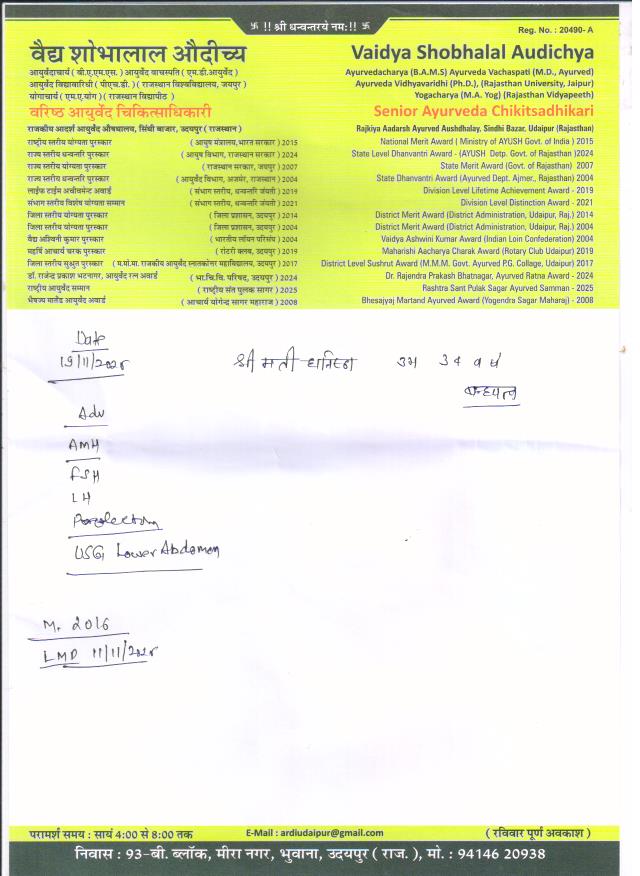 卐 !! श्री धन्वन्तरये नमः!! 卐
Reg. No. : 20490- A
वैद्य शोभालाल औदीच्य
आयुर्वेदाचार्य ( बी.ए.एम.एस. ) आयुर्वेद वाचस्पति ( एम.डी.आयुर्वेद )
आयुर्वेद विद्यावारिधी ( पीएच.डी. ) ( राजस्थान विश्वविद्यालय, जयपुर )
योगाचार्य ( एम.ए.योग ) ( राजस्थान विद्यापीठ )
वरिष्ठ आयुर्वेद चिकित्साधिकारी
राजकीय आदर्श आयुर्वेद औषधालय, सिंधी बाजार, उदयपुर ( राजस्थान )
राष्ट्रीय स्तरीय योग्यता पुरस्कार ( आयुष मंत्रालय,भारत सरकार ) 2015
राज्य स्तरीय धन्वन्तरि पुरस्कार ( आयुष विभाग, राजस्थान सरकार ) 2024
राज्य स्तरीय योग्यता पुरस्कार ( राजस्थान सरकार, जयपुर ) 2007
राज्य स्तरीय धन्वन्तरि पुरस्कार ( आयुर्वेद विभाग, अजमेर, राजस्थान ) 2004
लाईफ टाईम अचीवमेन्ट अवार्ड ( संभाग स्तरीय, धन्वन्तरि जंयती ) 2019
संभाग स्तरीय विशेष योग्यता सम्मान ( संभाग स्तरीय, धन्वन्तरि जंयती ) 2021
जिला स्तरीय योग्यता पुरस्कार ( जिला प्रशासन, उदयपुर ) 2014
जिला स्तरीय योग्यता पुरस्कार ( जिला प्रशासन, उदयपुर ) 2004
वैद्य अश्विनी कुमार पुरस्कार ( भारतीय लॉयन परिसंघ ) 2004
महर्षि आचार्य चरक पुरस्कार ( रोटरी क्लब, उदयपुर ) 2019
जिला स्तरीय सुश्रुत पुरस्कार ( म.मो.मा. राजकीय आयुर्वेद स्नातकोत्तर महाविद्यालय, उदयपुर ) 2017
डॉ. राजेन्द्र प्रकाश भटनागर, आयुर्वेद रत्न अवार्ड ( भा.चि.वि. परिषद, उदयपुर ) 2024
राष्ट्रीय आयुर्वेद सम्मान ( राष्ट्रीय संत पुलक सागर ) 2025
भैषज्य मार्तंड आयुर्वेद अवार्ड ( आचार्य योगेन्द्र सागर महाराज ) 2008
Vaidya Shobhalal Audichya
Ayurvedacharya (B.A.M.S) Ayurveda Vachaspati (M.D., Ayurved)
Ayurveda Vidhyavaridhi (Ph.D.), (Rajasthan University, Jaipur)
Yogacharya (M.A. Yog) (Rajasthan Vidyapeeth)
Senior Ayurveda Chikitsadhikari
Rajkiya Aadarsh Ayurved Aushdhalay, Sindhi Bazar, Udaipur (Rajasthan)
National Merit Award ( Ministry of AYUSH Govt. of India ) 2015
State Level Dhanvantri Award - (AYUSH Detp. Govt. of Rajasthan )2024
State Merit Award (Govt. of Rajasthan) 2007
State Dhanvantri Award (Ayurved Dept. Ajmer., Rajasthan) 2004
Division Level Lifetime Achievement Award - 2019
Division Level Distinction Award - 2021
District Merit Award (District Administration, Udaipur, Raj.) 2014
District Merit Award (District Administration, Udaipur, Raj.) 2004
Vaidya Ashwini Kumar Award (Indian Loin Confederation) 2004
Maharishi Aacharya Charak Award (Rotary Club Udaipur) 2019
District Level Sushrut Award (M.M.M. Govt. Ayurved P.G. Collage, Udaipur) 2017
Dr. Rajendra Prakash Bhatnagar, Ayurved Ratna Award - 2024
Rashtra Sant Pulak Sagar Ayurved Samman - 2025
Bhesajyaj Martand Ayurved Award (Yogendra Sagar Maharaj) - 2008
Date
19/11/2025
श्री मती उम्र वर्ष
बन्ध्यत्व
Adv
AMH
FSH
LH
USG Lower Abdomen
M. 2016
LMP 11/11/2025
परामर्श समय : सायं 4:00 से 8:00 तक
E-Mail : ardiudaipur@gmail.com
( रविवार पूर्ण अवकाश )
निवास : 93-बी. ब्लॉक, मीरा नगर, भुवाना, उदयपुर ( राज. ), मो. : 94146 20938